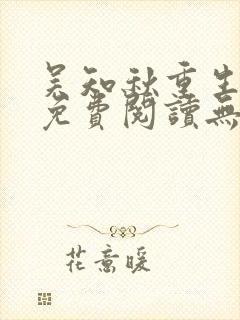 吴知秋重生
免費閱讀無
花意暖